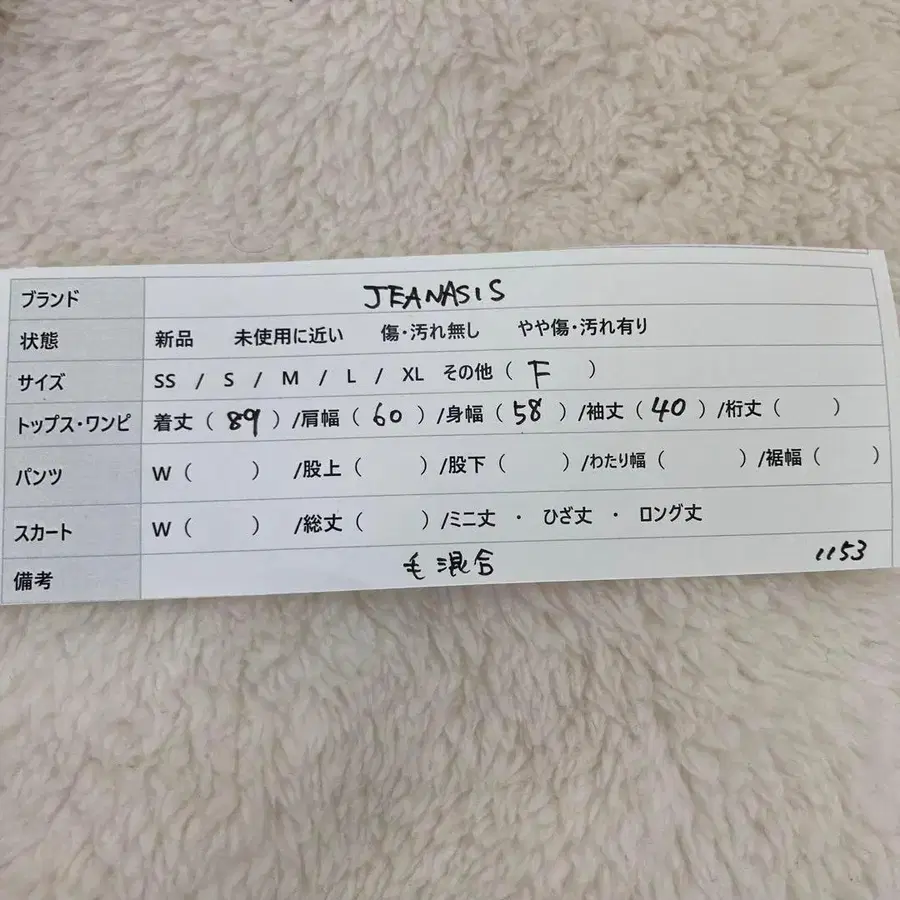 ブランド JEANASIS
状態 新品 未使用に近い 傷・汚れ無し やや傷・汚れ有り
サイズ SS / S / M / L / XL その他 ( F )
トップス・ワンピ 着丈 ( 89 ) /肩幅 ( 60 ) /身幅 ( 58 ) /袖丈 ( 40 ) /桁丈 ( )
パンツ W ( ) /股上 ( ) /股下 ( ) /わたり幅 ( ) /裾幅 ( )
スカート W ( ) /総丈 ( ) /ミニ丈 ・ ひざ丈 ・ ロング丈
備考 毛混合 1153